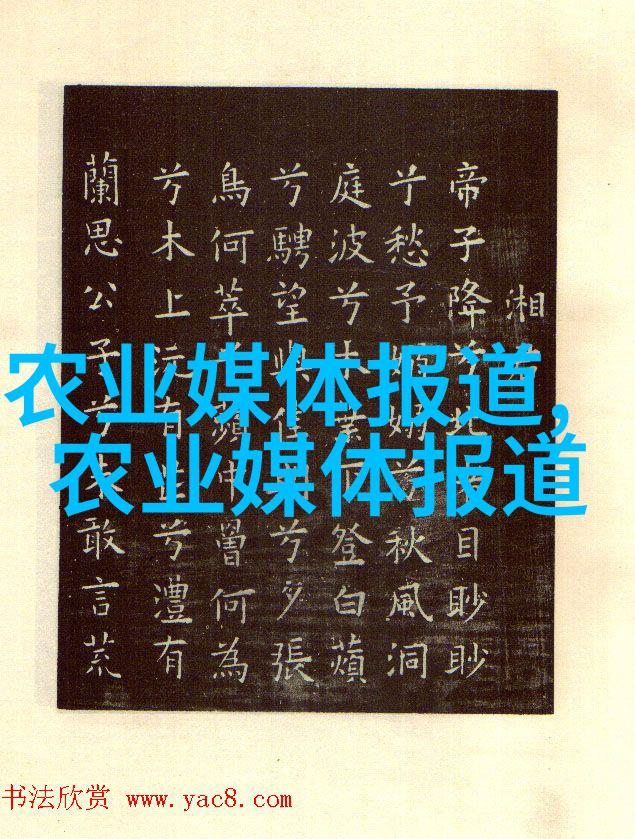 湘
帝子降兮北渚目眇眇
兮愁予嫋嫋兮秋風洞
庭波兮木葉下登白薠
兮騁望與佳兮夕張
鳥何萃兮蘋中罾何為
兮木上沅有芷兮澧有
蘭思公子兮未敢言荒
农业媒体报道,
农业媒体报道
书法欣赏 www.yac8.com